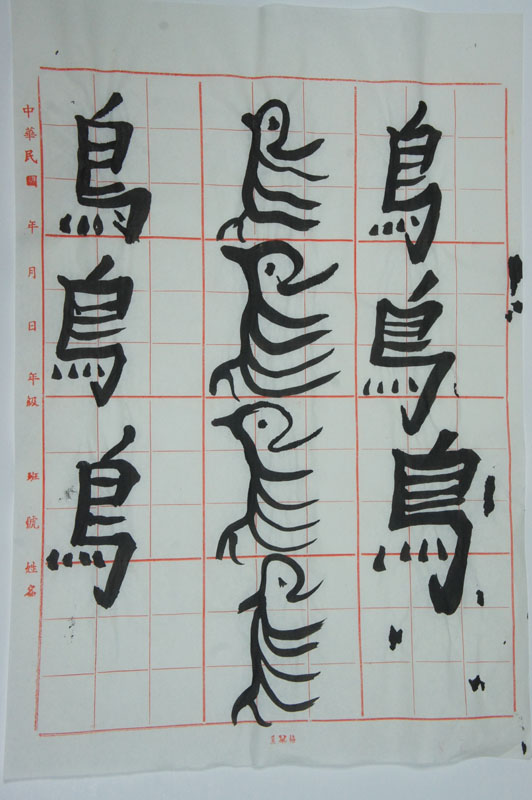 鳥鳥鳥
鳥鳥鳥鳥
鳥鳥鳥
中華民國 年 月 日 年級 班 號 姓名